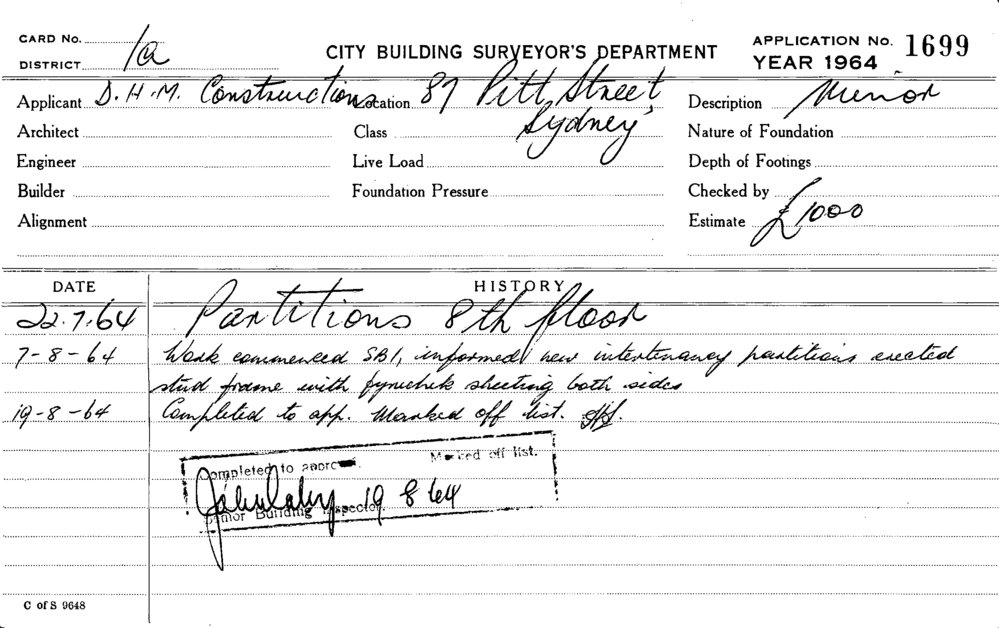 CARD No. 1a
CITY BUILDING SURVEYOR'S DEPARTMENT
APPLICATION No. 1699
DISTRICT
YEAR 1964
Applicant D.H.M. Constructions Location 87 Pitt Street, Sydney
Description Minor
Architect
Class
Nature of Foundation
Engineer
Live Load
Depth of Footings
Builder
Foundation Pressure
Checked by
Alignment
Estimate £1000
DATE
HISTORY
22.7.64 Partitions 8th floor
7-8-64 Work commenced SBI, informed new intertenancy partitions erected
stud frame with fyrchek sheeting both sides
19-8-64 Completed to app. Marked off list.
Completed to approval. Marked off list.
19 8 64
Senior Building Inspector.
C of S 9648